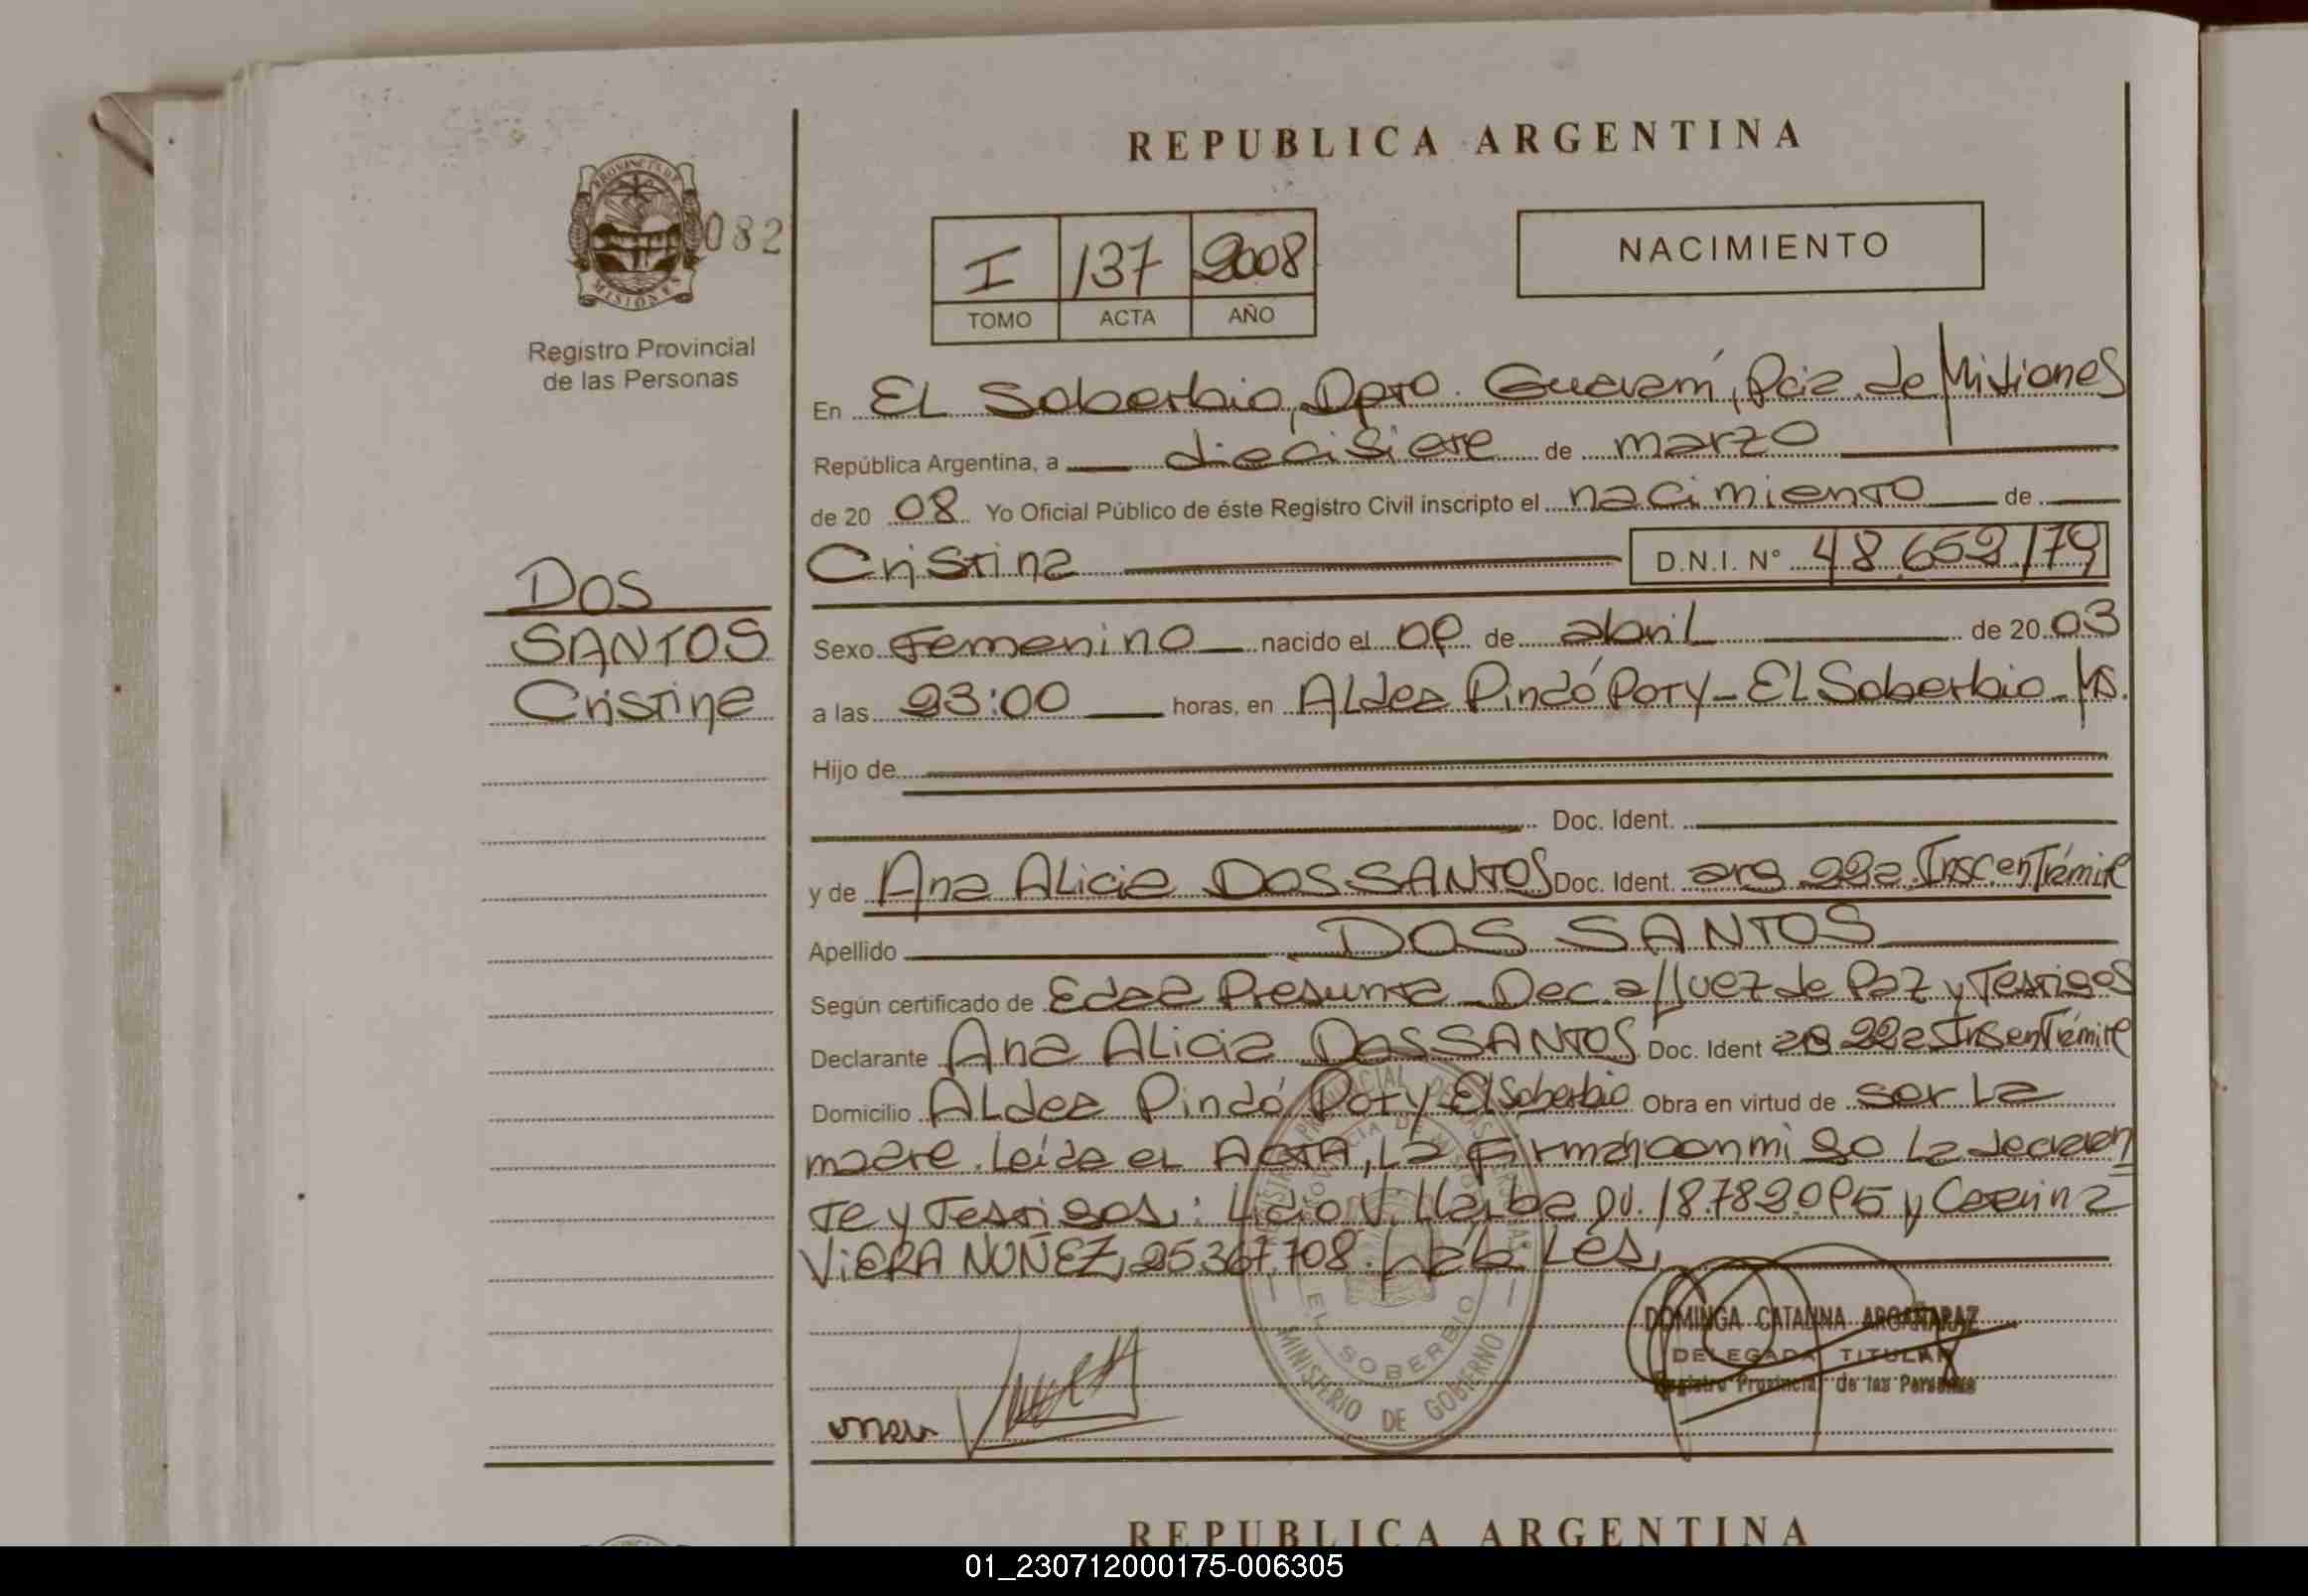 REPUBLICA ARGENTINA
PROVINCIA DE MISIONES
082
Registro Provincial
de las Personas
I 137 2008
TOMO ACTA AÑO
NACIMIENTO
En EL Soberbio, Dpto. Guaraní, Pcia. de Misiones
República Argentina, a diecisiete de marzo
de 20 08 Yo Oficial Público de éste Registro Civil inscripto el nacimiento de
Cristina D.N.I. Nº 48.652.179
DOS
SANTOS
Cristina
Sexo Femenino nacido el 09 de abril de 20 03
a las 23:00 horas, en Aldea Pindó Poty - EL Soberbio - Ms.
Hijo de
Doc. Ident.
y de Ana Alicia DOS SANTOS Doc. Ident. Insc en Trámite
Apellido DOS SANTOS
Según certificado de Edad Presunta Dec. a/ Juez de Paz y Testigos
Declarante Ana Alicia DOS SANTOS Doc. Ident Ins en Trámite
Domicilio ALdea Pindó Poty El Soberbio Obra en virtud de ser la
madre. Leída el ACTA, La Firman conmigo La declaran
te y Testigos: V. 18.782.095 y
ViERA NUÑEZ, 25.367.708
EL SOBERBIO
MINISTERIO DE GOBIERNO
DOMINGA CATALINA ARGAÑARAZ
DELEGADA TITULAR
Registro Provincial de las Personas
REPUBLICA ARGENTINA
01_230712000175-006305